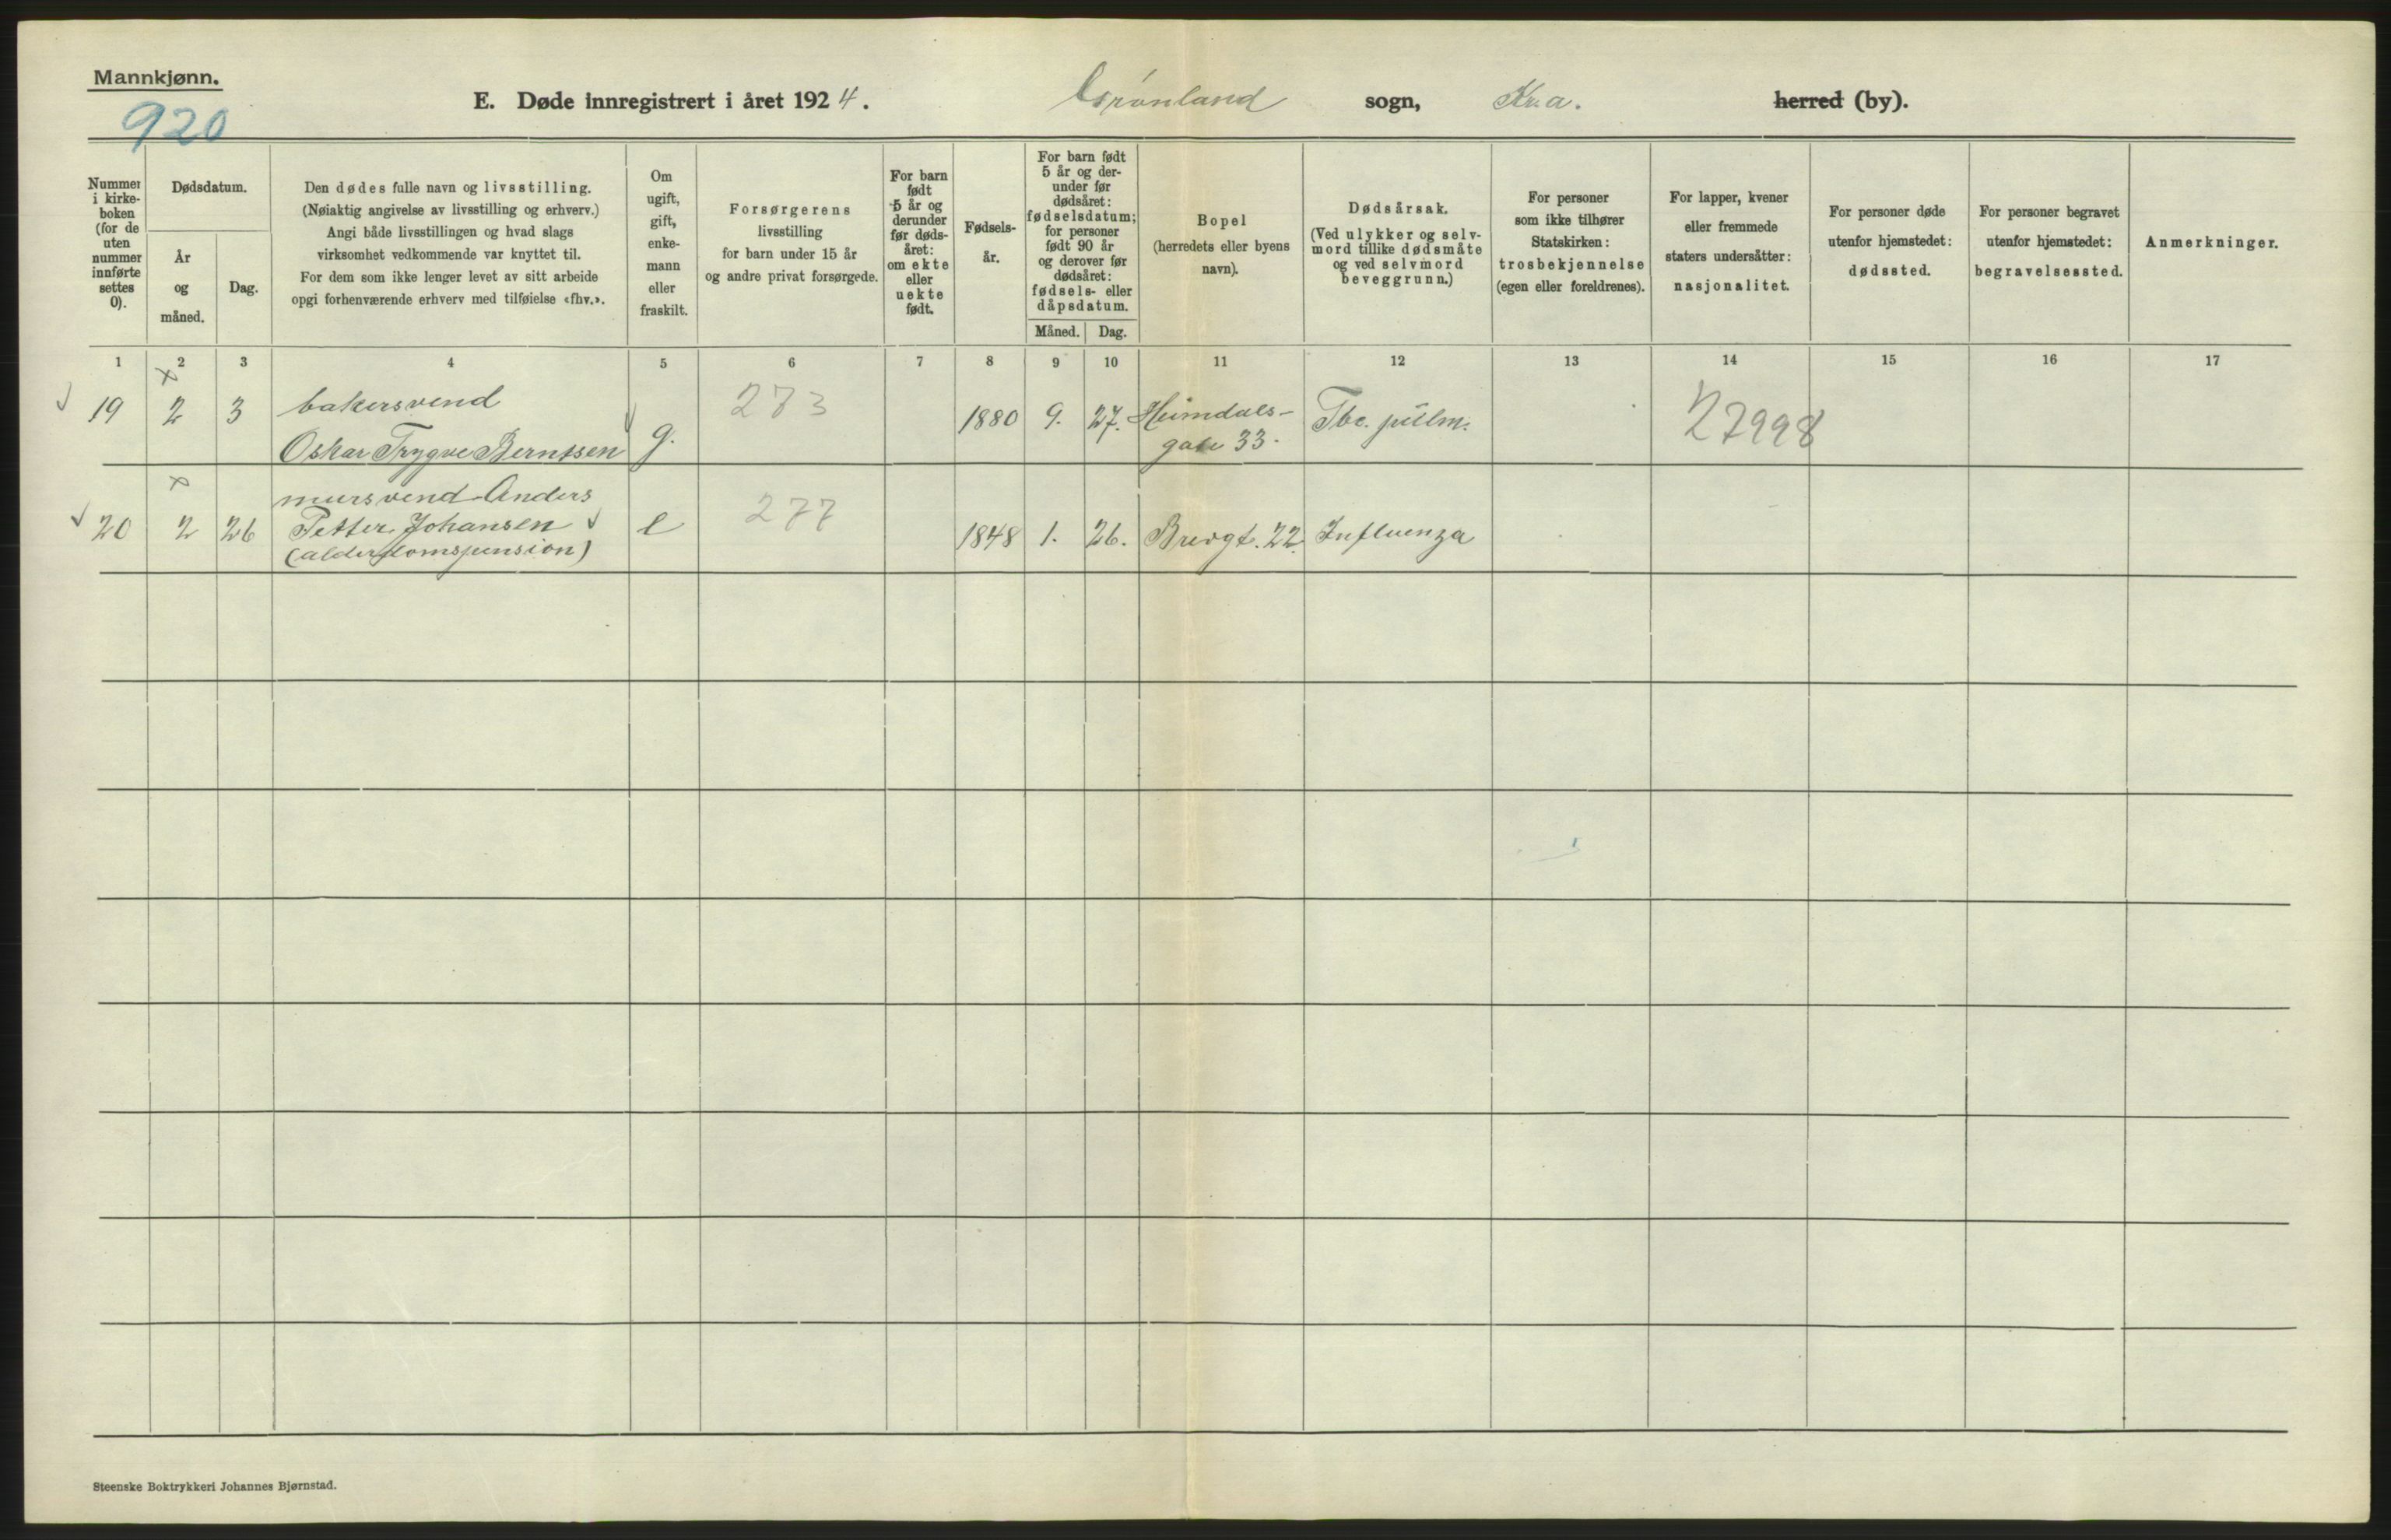 Mannkjønn.
920
E. Døde innregistrert i året 1924. Grønland sogn, Kr.a. herred (by).
Nummer
i kirke-
boken
(for de
uten
nummer
innførte
settes
0).
Dødsdatum.
År
og
måned.
Dag.
Den dødes fulle navn og livsstilling.
(Nøiaktig angivelse av livsstilling og erhverv.)
Angi både livsstillingen og hvad slags
virksomhet vedkommende var knyttet til.
For dem som ikke lenger levet av sitt arbeide
opgi forhenværende erhverv med tilføielse «fhv.».
Om
ugift,
gift,
enke-
mann
eller
fraskilt.
Forsørgerens
livsstilling
for barn under 15 år
og andre privat forsørgede.
For barn
født
5 år og
derunder
før døds-
året:
om ekte
eller
uekte
født.
Fødsels-
år.
For barn født
5 år og der-
under før
dødsåret:
fødselsdatum;
for personer
født 90 år
og derover før
dødsåret:
fødsels- eller
dåpsdatum.
Måned. Dag.
Bopel
(herredets eller byens
navn).
Dødsårsak.
(Ved ulykker og selv-
mord tillike dødsmåte
og ved selvmord
beveggrunn.)
For personer
som ikke tilhører
Statskirken:
trosbekjennelse
(egen eller foreldrenes).
For lapper, kvener
eller fremmede
staters undersåtter:
nasjonalitet.
For personer døde
utenfor hjemstedet:
dødssted.
For personer begravet
utenfor hjemstedet:
begravelsessted.
Anmerkninger.
1 2 3 4 5 6 7 8 9 10 11 12 13 14 15 16 17
x
bakersvend
19 2 3 Oskar Trygve Berntsen g. 273 1880 9. 27. Heimdals-
gate 33. Tbc. pulm. 27998
x
mursvend Anders
20 2 26 Petter Johansen e 277 1848 1. 26. Brevgt. 22. Influenza
(alderdomspension)
Steenske Boktrykkeri Johannes Bjørnstad.